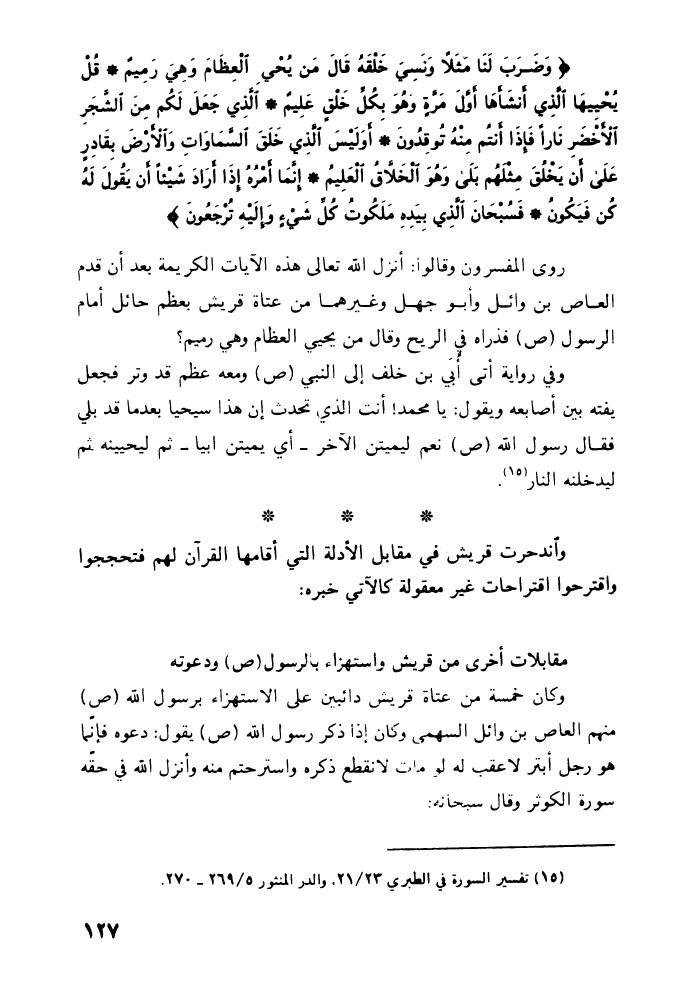 ﴿ وَضَرَبَ لَنَا مَثَلاً وَنَسِيَ خَلْقَهُ قَالَ مَن يُحْيِ ٱلْعِظَامَ وَهِيَ رَمِيمٌ * قُلْ
يُحْيِيهَا ٱلَّذِي أَنشَأَهَا أَوَّلَ مَرَّةٍ وَهُوَ بِكُلِّ خَلْقٍ عَلِيمٌ * ٱلَّذِي جَعَلَ لَكُم مِنَ ٱلشَّجَرِ
ٱلْأَخْضَرِ نَاراً فَإِذَا أَنتُم مِنْهُ تُوقِدُونَ * أَوَلَيْسَ ٱلَّذِي خَلَقَ ٱلسَّمَاوَاتِ وَٱلْأَرْضَ بِقَادِرٍ
عَلَىٰ أَن يَخْلُقَ مِثْلَهُم بَلَىٰ وَهُوَ ٱلْخَلَّاقُ ٱلْعَلِيمُ * إِنَّمَا أَمْرُهُ إِذَا أَرَادَ شَيْئاً أَن يَقُولَ لَهُ
كُن فَيَكُونُ * فَسُبْحَانَ ٱلَّذِي بِيَدِهِ مَلَكُوتُ كُلِّ شَيْءٍ وَإِلَيْهِ تُرْجَعُونَ ﴾
روى المفسرون وقالوا: أنزل الله تعالى هذه الآيات الكريمة بعد أن قدم
العاص بن وائل وأبو جهل وغيرهما من عتاة قريش بعظم حائل أمام
الرسول (ص) فذراه في الريح وقال من يحيي العظام وهي رميم؟
وفي رواية أتى أُبَي بن خلف إلى النبي (ص) ومعه عظم قد وتر فجعل
يفته بين أصابعه ويقول: يا محمد! أنت الذي تحدث إن هذا سيحيا بعدما قد بلي
فقال رسول الله (ص) نعم ليميتن الآخر ـ أي يميتن ابيا ـ ثم ليحيينه ثم
ليدخلنه النار(١٥).
* * *
وٱندحرت قريش في مقابل الأدلة التي أقامها القرآن لهم فتحججوا
واقترحوا اقتراحات غير معقولة كالآتي خبره:
مقابلات أخرى من قريش واستهزاء بالرسول(ص) ودعوته
وكان خمسة من عتاة قريش دائبين على الاستهزاء برسول الله (ص)
منهم العاص بن وائل السهمي وكان إذا ذكر رسول الله (ص) يقول: دعوه فإنّما
هو رجل أبتر لاعقب له لو مات لانقطع ذكره واسترحتم منه وأنزل الله في حقّه
سورة الكوثر وقال سبحانه:
(١٥) تفسير السورة في الطبري ٢١/٢٣، والدر المنثور ٢٦٩/٥ ـ ٢٧٠.
١٢٧